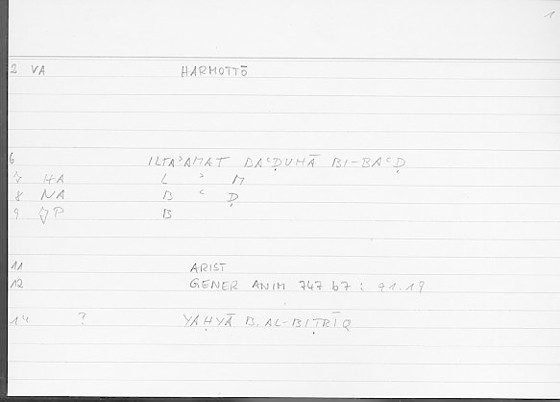 1
2 VA HARMOTTŌ
6 ILTAʾAMAT BAʿḌUHĀ BI-BAʿḌ
7 HA L ʾ M
8 NA B ʿ Ḍ
9 JP B
11 ARIST
12 GENER ANIM 747 b7 : 91.19
14 ? YAḤYĀ B. AL-BIṬRĪQ